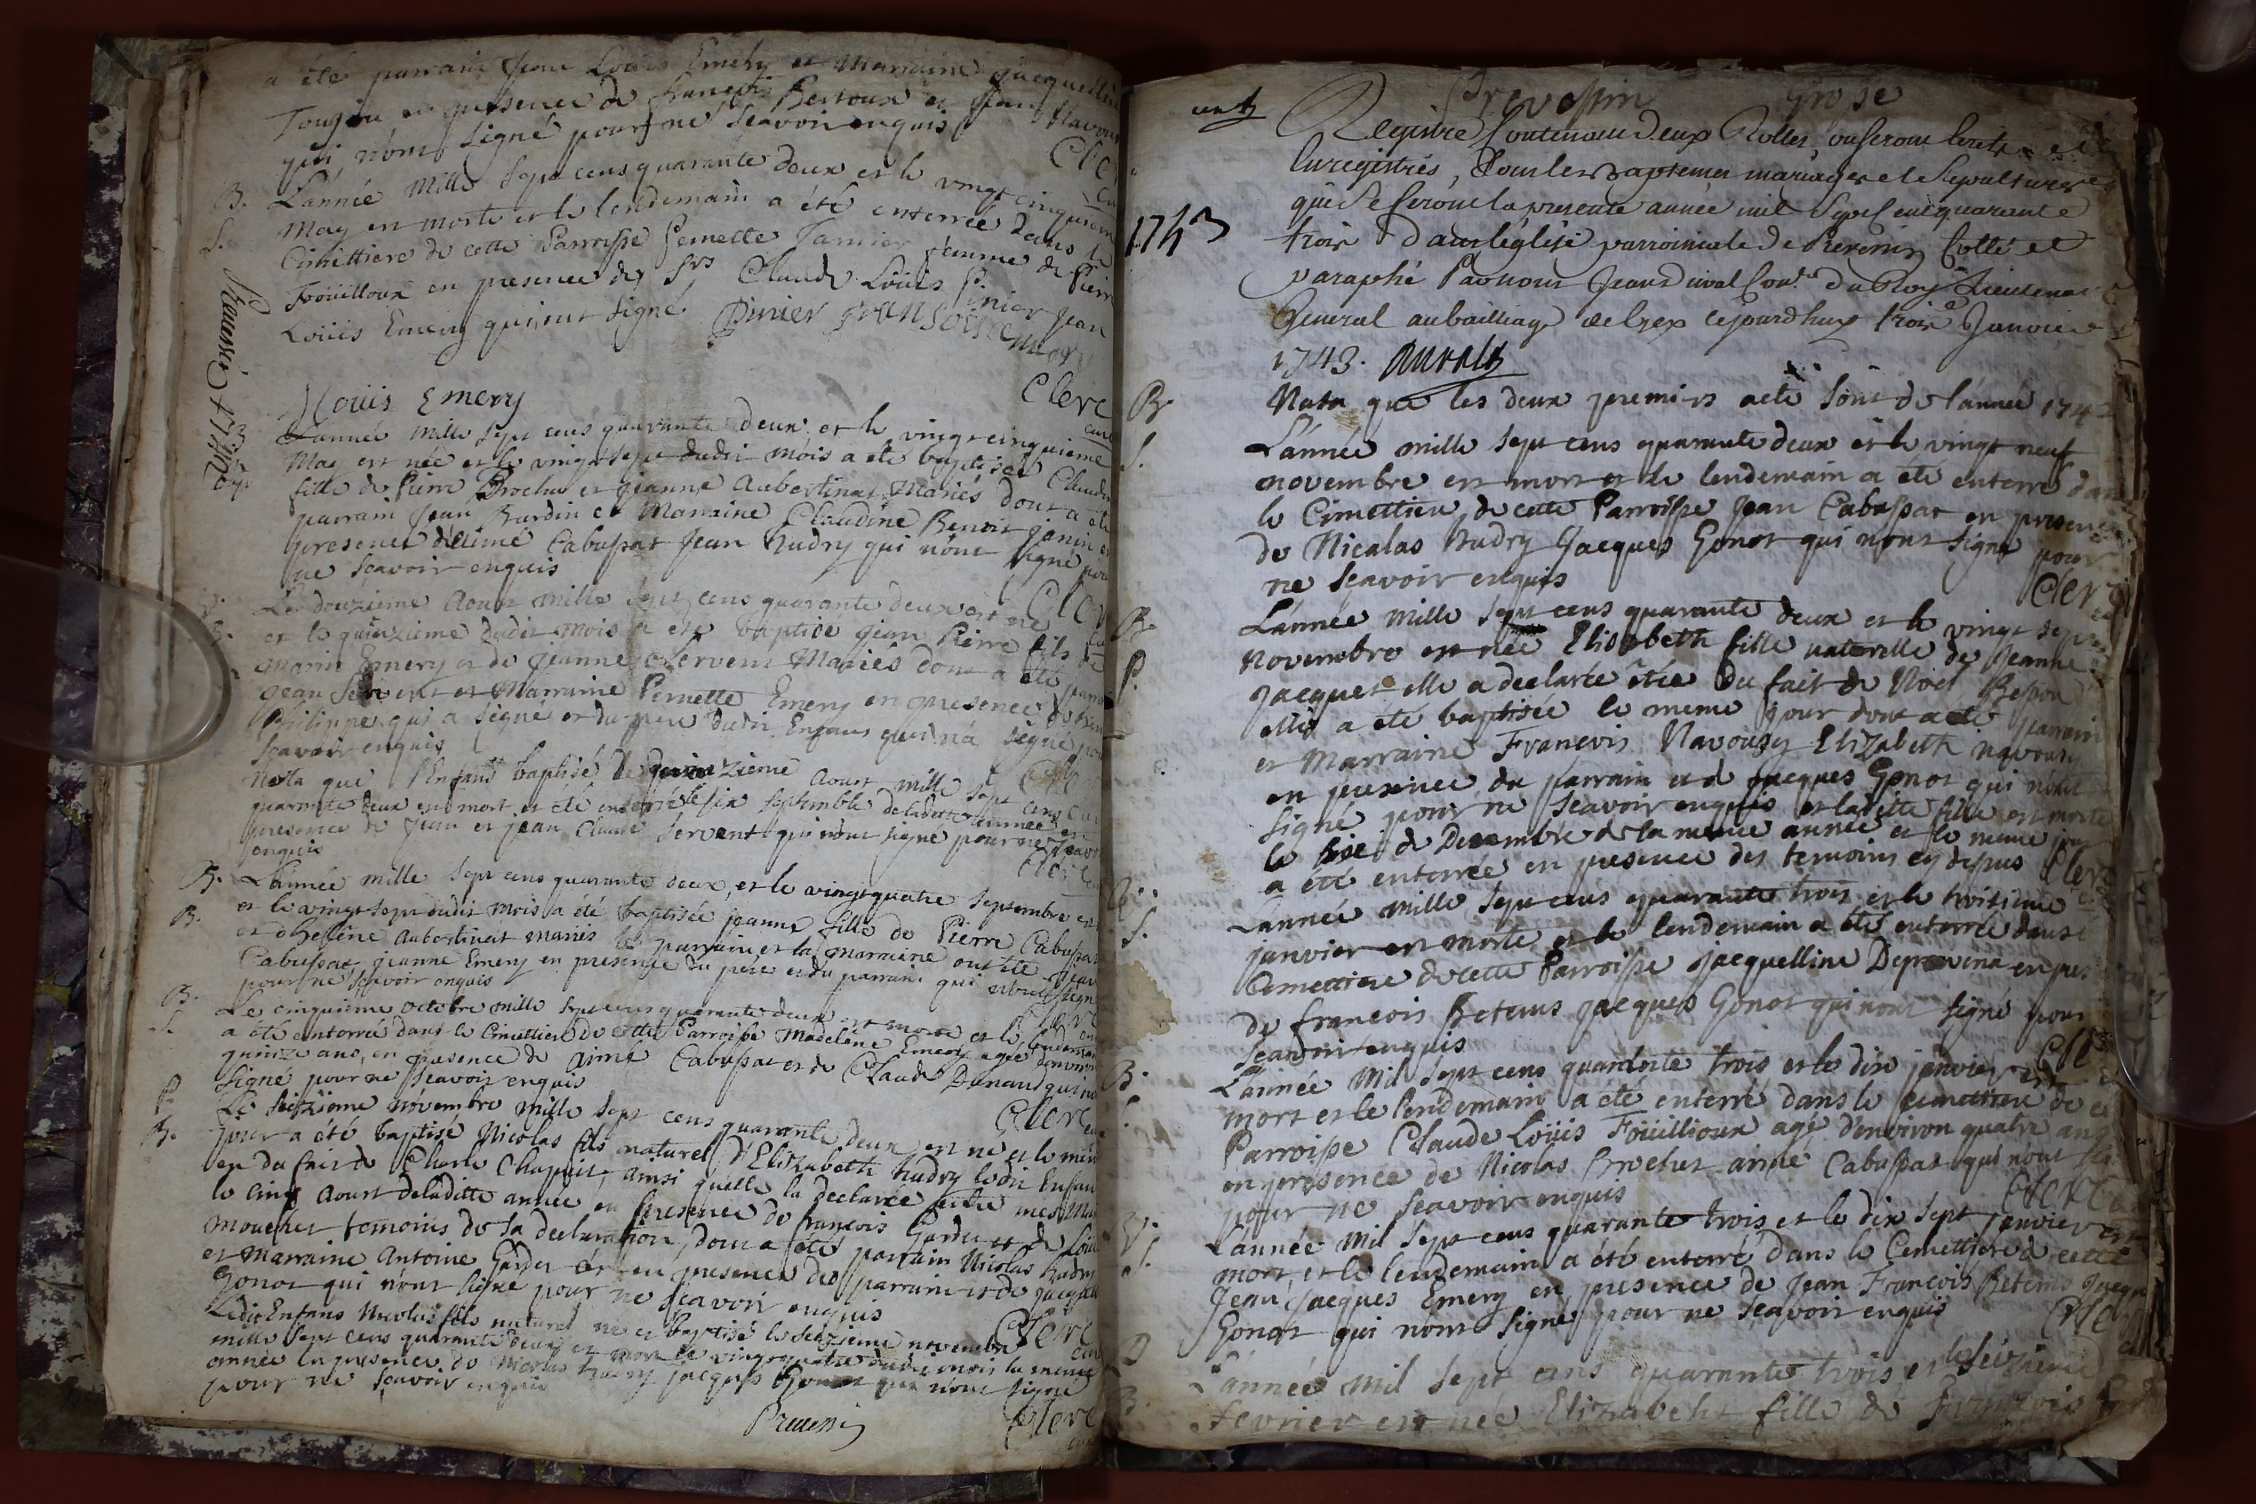 a été parrain Jean Louis Emery et Marraine Jacquelline
Toujou en presence de francois Bestoux et Jean Navoux
qui n'ont signé pour ne scavoir enquis
Clerc
B. L'année Mille sept cens quarante deux et le vingt cinquiem
S. May est morte et le lendemain a été enterrée dans le
Cimittiere de cette Parroisse Pernette Tarnier femme de Pierre
Foüilloux en presence des Srs Claude Loüis Pinier Jean
Loüis Emery qui ont signé Pinier
Clerc
Louis Emery
curé
L'année mille sept cens quarante deux et le vingt cinquieme
May est née et le vingt sept dudit mois a été baptisée Claudine
fille de Pierre Brochu et jeanne Aubertinat Mariés dont a été
parrain Jean Bardin et Marraine Claudine Benoit Janin en
presence d'Éimé Cabussat Jean Rudry qui n'ont signé pour
ne scavoir enquis
Clerc
Le douzieme Aoust mille sept cens quarante deux est né
et le quinzieme dudit mois a été baptisé jean Pierre fils de
Marin Emery et de jeanne Servent Mariés dont a été parrain
jean Servent et Marraine Pernette Emery en presence
Philippe qui a signé et du pere dudit Enfans qui n'a signé pour
scavoir enquis
Nota que l'Enfant baptisé le quinzieme Aoust mille sept cens
quarante deux est mort et été enterré le six septembre de laditte année en
presence de jean et jean Claude Servent qui n'ont signé pour ne scavoir
enquis
Clerc
B. L'année mille sept cens quarante deux, et le vingt quatre septembre est
B. et le vingt sept dudit mois a été baptisée jeanne fille de Pierre Cabussat
et d'helene Aubertinat mariés le parrain et la marraine ont été
Cabussat jeanne Emery en presence du pere et du parrain qui
pour ne scavoir enquis
Clerc
B. Le cinquieme octobre mille sept cens quarante deux est morte et le lendemain
S. a été enterrée dans le Cimittiere de cette Parroisse Madeléne Emery agée d'environ
quinze ans, en presence de Aimé Cabussat et de Claude Dunand qui n'ont
signé pour ne scavoir enquis
Clerc
P. Le seizieme novembre mille sept cens quarante deux est né et le même
B. jour a été baptisé Nicolas fils naturel d'Elizabeth Rudry ledit Enfant
est du fait de Charle Chapuit, ainsi qu'elle la declarée entre mes mains
le cinq Aoust de laditte année en presence de francois Gardet et de Loüis
mouchet temoins de sa declaration, dont a été parrain Nicolas Rudry
et marraine Antoine Gardet et en presence des parrain et de jacques
Gonot qui n'ont signé pour ne scavoir enquis
Clerc
Ledit Enfans Nicolas fils naturel né et baptisé le seizieme novembre
mille sept cens quarante deux est mort le vingt quatre dudit mois la meme
année en presence de Nicolas Rudry jacques Gonot qui n'ont signé
pour ne scavoir enquis
Clerc
Prevessin
Prevessin Grose
Registre Contenant deux Rolles ou seront écrits et
Enregistrés, tous les Baptemes mariages et Sepultures
qui se feront la presente année mil Sept Cent quarante
1743
trois dans l'église parroissiale de Prevessin Cotté et
paraphé Par nous Jean Duval Con.er du Roy Lieutenant
General au bailliage de Gex cejourdhuy trois.e Janvier
1743. Duval
Nota que les deux premiers acte sont de l'année 1742
B. L'année mille sept cens quarante deux et le vingt neuf
S. novembre est mort et le lendemain a été enterré dans
le Cimettiere de cette Parroisse Jean Cabussat en presence
de Nicalas Rudry Jacques Gonot qui n'ont signé pour
ne scavoir enquis
Clerc
B. L'année mille sept cens quarante deux et le vingt sept
Novembre est née Elisabeth fille naturelle de Jeanne
P. Jacquet elle a declarée être du fait de Noël Besson
elle a été baptisée le meme jour dont a été parrain
et Marraine Francois Navouzy Elizabeth navouzy
en presence du parrain et de Jacques Gonot qui n'ont
signé pour ne scavoir enquis et laditte fille est morte
le sixe de Decembre de la meme année et le meme jour
a été enterrée en presence des temoins cy dessus Clerc
L'année mille sept cens quarante trois et le troisieme
S. janvier est morte et le lendemain a été enterrée dans le
Cimettiere de cette Parroisse Jacquelline Depravena en pres
de francois Betems Jacques Gonot qui n'ont signé pour
scavoir enquis
Clerc
B. L'année Mil sept cens quarante trois et le dix janvier est
mort et le lendemain a été enterré dans le cimettiere de ce
Parroisse Claude Loüis Foüillioux agé d'environ quatre ans
en presence de Nicolas Brochet aimé Cabussat qui n'ont si
pour ne scavoir enquis
Clerc
B. L'année Mil sept cens quarante trois et le dix sept janvier est
S. mort et le lendemain a été enterré dans le Cemettiere de cette
Jean Jacques Emery en presence de Jean Francois Betems Jacqu
Gonot qui n'ont signé pour ne scavoir enquis
Clerc
L'année Mil sept cens quarante trois, et le seizieme
B. fevrier est née Elizabeht fille de francois